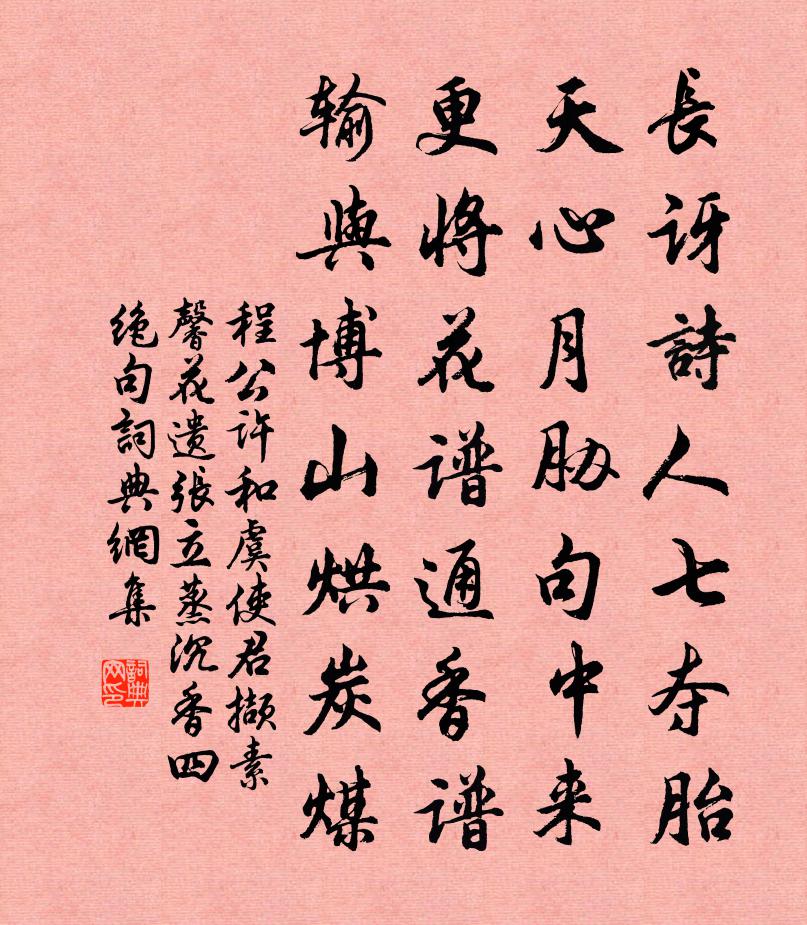 長訝詩人七夺胎
天心月胁句中来
更將花谱通香谱
输與博山烘炭煤
程公许和虞使君撷素
馨花遗張立蒸沉香四
绝句詞典網集
詞典
网印